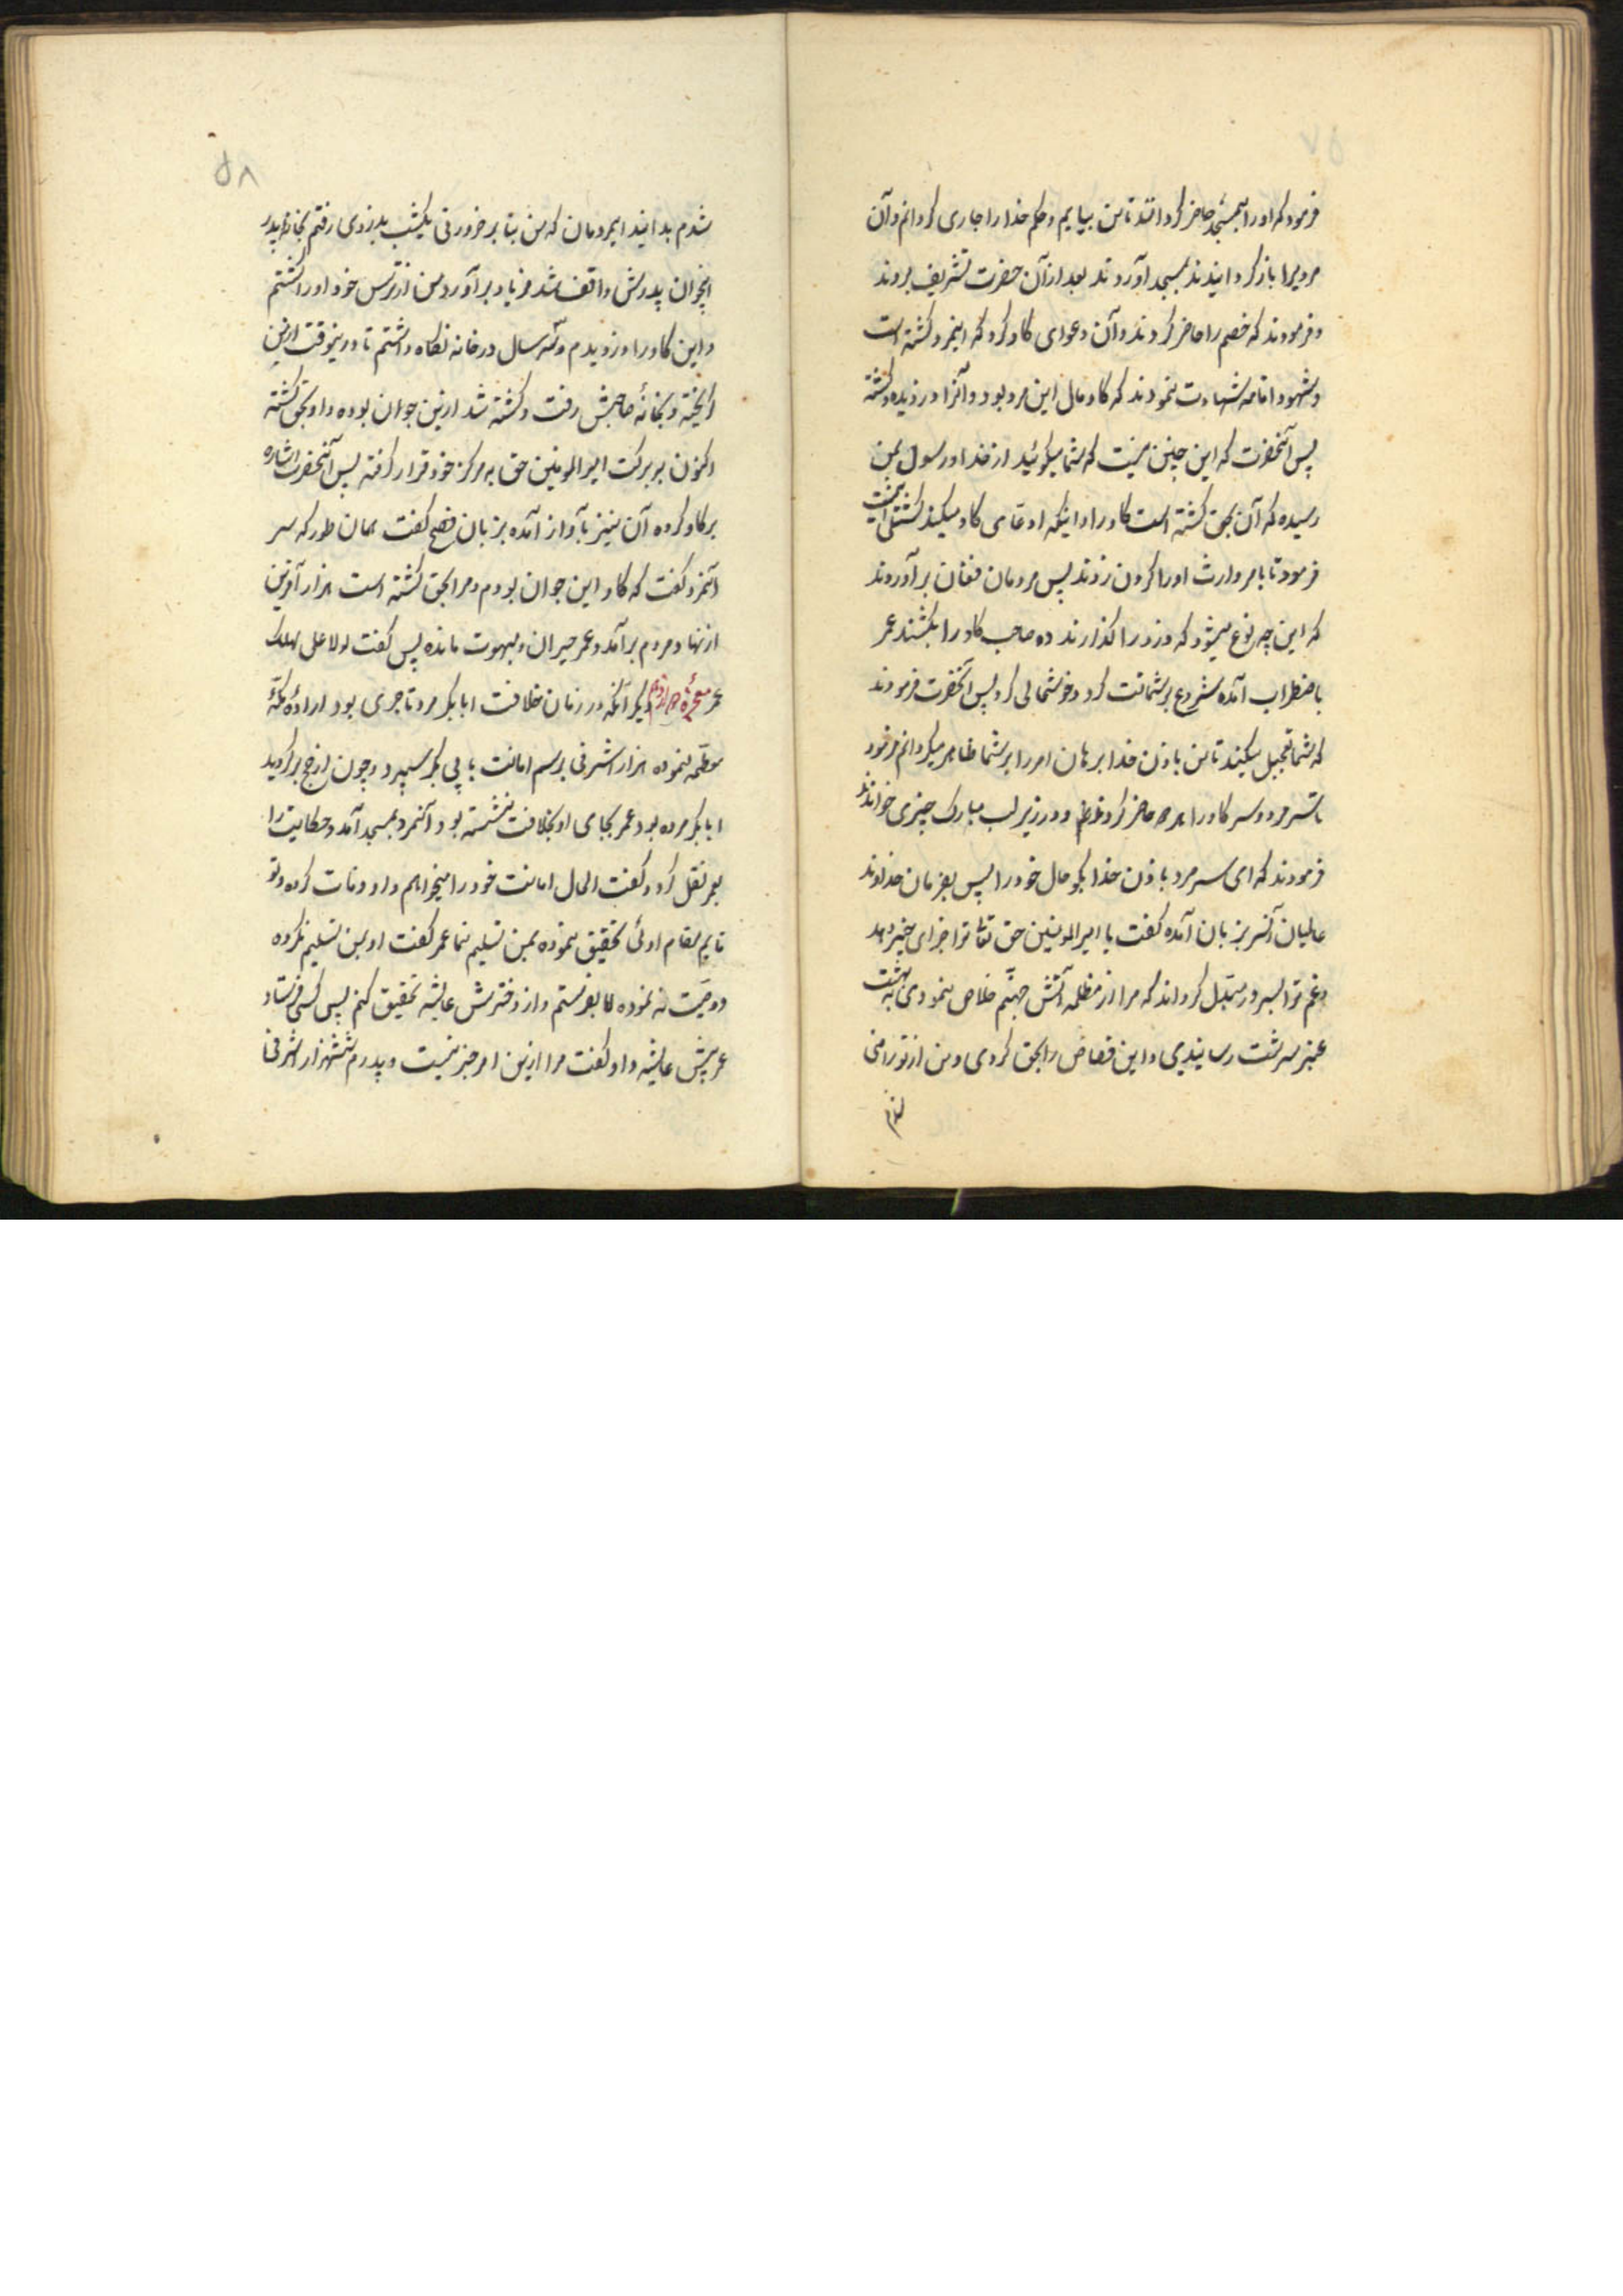 فرمود که اورا بمسجد حاضر کردانند تا من بیایم و حکم خدا را جاری کردانم و آن
مردیرا باز کردانیدند بمسجد آوردند بعد از آن حضرت تشریف بردند
و فرمودند که خصم را حاضر کردند و آن دعوای کاو کرد که اینمرد کشته است
و شهود اقامه شهادت نمودند که کاو مال این مرد بود و آنرا دزدیده و کشته
پس آنحضرت که این چنین نیست که شما میکوئید از خدا و رسول بمن
رسیده که آن بحق کشته است کاو را و اینکه ادعای کاو میکند کشتنی است
فرمود تا بامر وارث اورا کردن زدند پس مردمان فغان برآوردند
که این چه نوع میشود که دزد را کذارند و صاحب کاو را بکشند عمر
باضطراب آمده شروع بر شماتت کرد و خوشحالی کرد پس آنحضرت فرمودند
که شما تعجیل مکنید تا من باذن خدا برهان امر را بر شما ظاهر میکردانم فرمود
تا سر مرد و سر کاو را حاضر کردند و در زیر لب مبارک چیزی خواندند
فرمودند که ای سر مرد باذن خدا بکو حال خود را پس بفرمان خداوند
عالمیان آنسر بزبان آمده کفت یا امیرالمومنین حق تعالی ترا جزای خیر دهد
و غم ترا بسرور مبدل کرداند که مرا از مظلمه آتش جهنم خلاص نمودی به بهشت
عنبر سرشت رسانیدی و این قصاص را بحق کردی و من از تو راضی
شدم
۵۸
شدم بدانید ایمردمان که من بنا بر ضرورتی یکشب بدزدی رفتم بخانه پدر
اینجوان پدرش واقف شد فریاد برآورد من از ترس خود اورا کشتم
و این کاو را دزدیدم و سه سال در خانه نکاه داشتم تا درینوقت ازین
کریخته و بخانهٔ صاحبش رفت و کشته شد ازین جوان بوده و او بحق کشته
اکنون به برکت امیرالمومنین حق به مرکز خود قرار کرفته پس آنحضرت اشاره
بر کاو کرده آن نیز بآواز آمده بزبان فصیح کفت بهمان طور که سر
آنمرد کفت که کاو این جوان بودم و مرا بحق کشته است هزار آفرین
از نهاد مردم برآمد و عمر حیران و مبهوت مانده پس کفت لولا علی لهلک
عمر معجزهٔ دیکر آنکه در زمان خلافت ابابکر مرد تاجری بود ارادهٔ مکهٔ
معظمه نموده هزار اشرفی برسم امانت بابی بکر سپرد و چون از حج برکردید
ابابکر مرده بود عمر بجای او بخلافت نشسته بود آنمرد بمسجد آمد و حکایت را
بعمر نقل کرد و کفت الحال امانت خود را میخواهم و او وفات کرده و تو
قایم مقام اوئی تحقیق نموده بمن تسلیم نما عمر کفت او بمن تسلیم نکرده
و وصیت نه نموده اما بفرستم و از دخترش عایشه تحقیق کنم پس کس فرستاد
عمر پیش عایشه و او کفت مرا ازین امر خبر نیست و پدرم ششهزار اشرفی